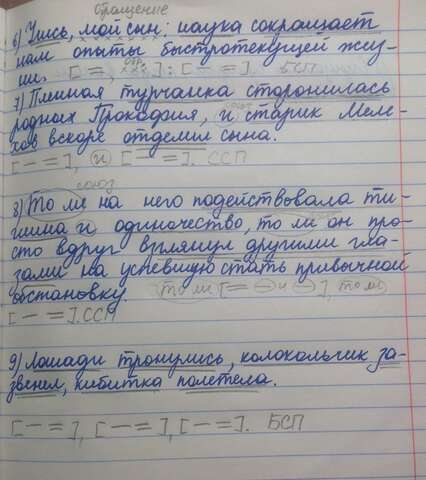 обращение
6) Учись, мой сын: наука сокращает
нам опыты быстротекущей жиз-
ни. [=, обр.]: [- =]. БСП
7) Пленная турчанка сторонилась
союз
родных Прокофия, и старик Меле-
хов вскоре отделил сына.
[- =], и [- =]. ССП
союз
8) То ли на него подействовала ти-
шина и одиночество, то ли он про-
сто вдруг взглянул другими гла-
зами на успевшую стать привычной
обстановку. то ли [= - и -], то ли
[- =]. ССП
9) Лошади тронулись, колокольчик за-
звенел, кибитка полетела.
[- =], [- =], [- =]. БСП